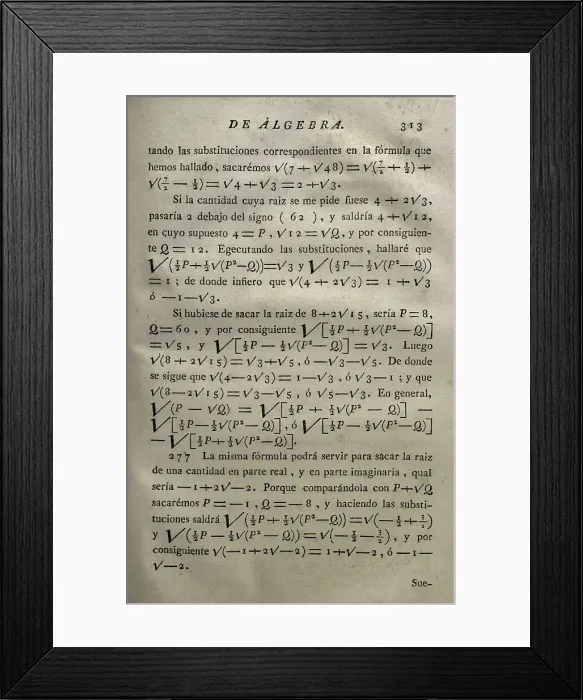 DE ÁLGEBRA. 313
tando las substituciones correspondientes en la fórmula que
hemos hallado, sacarémos √(7 + √48) = √(7/2 + 1/2) +
√(7/2 — 1/2) = √4 + √3 = 2 + √3.
Si la cantidad cuya raiz se me pide fuese 4 + 2√3,
pasaría 2 debajo del signo ( 62 ), y saldría 4 + √12,
en cuyo supuesto 4 = P, √12 = √Q, y por consiguien-
te Q = 12. Egecutando las substituciones, hallaré que
√(½P+½√(P²—Q))=√3 y √(½P—½√(P²—Q))
= 1 ; de donde infiero que √(4 + 2√3) = 1 + √3
ó — 1 — √3.
Si hubiese de sacar la raiz de 8+2√15, sería P = 8,
Q=60, y por consiguiente √[½P + ½√(P²—Q)]
= √5, y √[½P — ½√(P²—Q)] = √3. Luego
√(8 + 2√15) = √3+√5, ó —√3—√5. De donde
se sigue que √(4—2√3) = 1—√3, ó √3—1 ; y que
√(8—2√15) = √3—√5, ó √5—√3. En general,
√(P — √Q) = √[½P + ½√(P² — Q)] —
√[½P—½√(P²—Q)], ó √[½P — ½√(P²—Q)]
— √[½P+½√(P²—Q)].
277 La misma fórmula podrá servir para sacar la raiz
de una cantidad en parte real, y en parte imaginaria, qual
sería —1+2√—2. Porque comparándola con P+√Q
sacarémos P = — 1, Q = — 8, y haciendo las substi-
tuciones saldrá √(½P+½√(P²—Q)) = √(—½+3/2)
y √(½P — ½√(P² — Q)) = √(—½—3/2), y por
consiguiente √(—1+2√—2) = 1+√—2, ó —1—
√—2.
Sue-